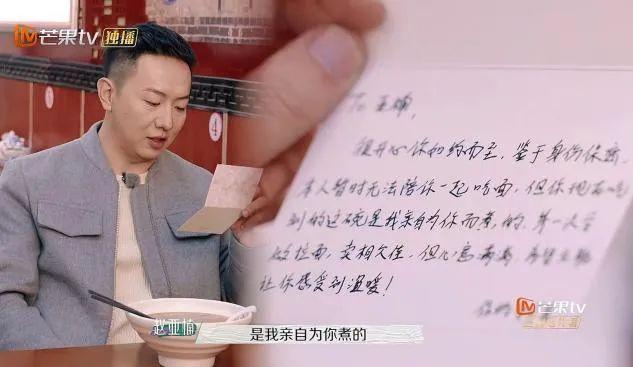 芒果tv 独播
④
To 亚楠,
很开心你如约而至,鉴于身份保密,
本人暂时无法陪你一起吃面,但你现在吃
到的这碗是我亲自为你而煮的,第一次尝
做拉面,卖相欠佳,但心意满满,希望能
让你感受到温暖!
赵亚楠
是我亲自为你煮的
芒果tv